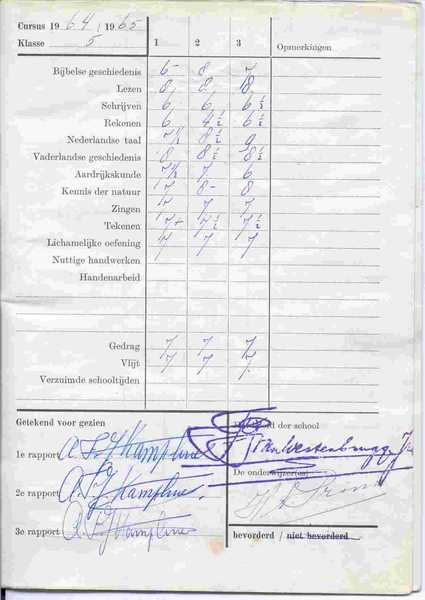 Cursus 1964 / 1965
Klasse 5 1 2 3 Opmerkingen
Bijbelse geschiedenis 6- 8 7
Lezen 8 8 8
Schrijven 6 6 6½
Rekenen 6 4½ 6½
Nederlandse taal 7½ 8½ 9
Vaderlandse geschiedenis 8 8½ 8½
Aardrijkskunde 7½ 7 6
Kennis der natuur 7 8- 8
Zingen 7 7 7
Tekenen 7+ 7½ 7½
Lichamelijke oefening 7 7 7
Nuttige handwerken
Handenarbeid
Gedrag 7 7 7
Vlijt 7 7 7
Verzuimde schooltijden
Getekend voor gezien
der school
1e rapport
De onderwijzer(es)
2e rapport
3e rapport
bevorderd / niet bevorderd